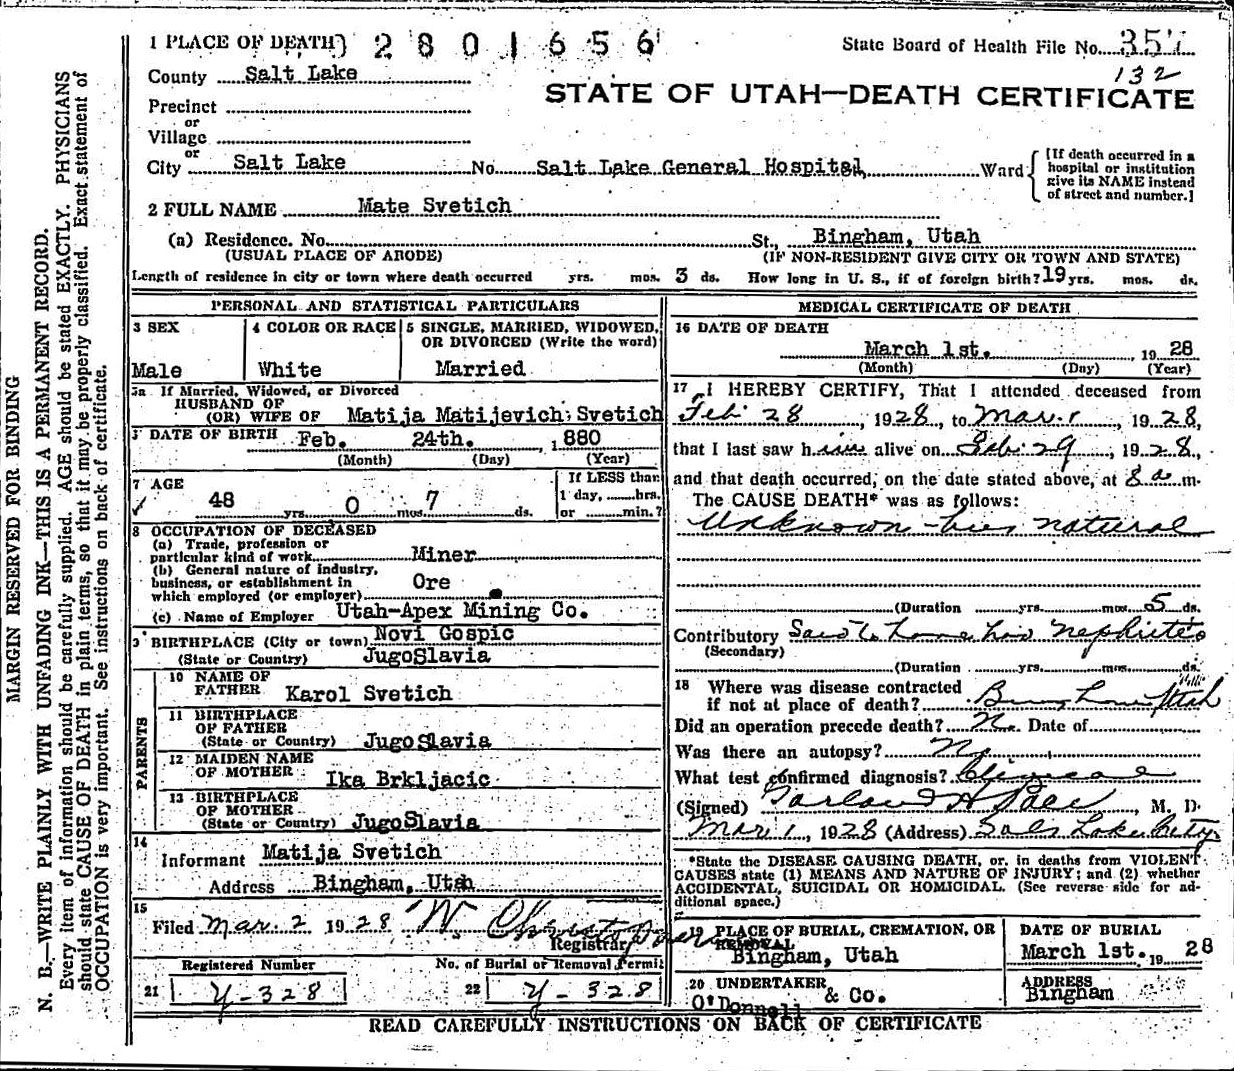 1 PLACE OF DEATH) 2801656
State Board of Health File No. 357
132
County Salt Lake
STATE OF UTAH—DEATH CERTIFICATE
Precinct
or
Village
or
City Salt Lake No. Salt Lake General Hospital, Ward
[If death occurred in a
hospital or institution
give its NAME instead
of street and number.]
2 FULL NAME Mate Svetich
(a) Residence. No. St., Bingham, Utah
(USUAL PLACE OF ABODE) (IF NON-RESIDENT GIVE CITY OR TOWN AND STATE)
Length of residence in city or town where death occurred yrs. mos. 3 ds. How long in U. S., if of foreign birth? 19 yrs. mos. ds.
PERSONAL AND STATISTICAL PARTICULARS
3 SEX
Male
4 COLOR OR RACE
White
5 SINGLE, MARRIED, WIDOWED,
OR DIVORCED (Write the word)
Married
5a If Married, Widowed, or Divorced
HUSBAND OF
(OR) WIFE OF Matija Matijevich Svetich
DATE OF BIRTH Feb. 24th. 1880
(Month) (Day) (Year)
7 AGE
48 yrs. 0 mos. 7 ds.
If LESS than
1 day, hrs.
or min.?
8 OCCUPATION OF DECEASED
(a) Trade, profession or
particular kind of work Miner
(b) General nature of industry,
business, or establishment in
which employed (or employer) Ore
(c) Name of Employer Utah-Apex Mining Co.
9 BIRTHPLACE (City or town) Novi Gospic
(State or Country) JugoSlavia
PARENTS
10 NAME OF
FATHER Karol Svetich
11 BIRTHPLACE
OF FATHER
(State or Country) JugoSlavia
12 MAIDEN NAME
OF MOTHER Ika Brkljacic
13 BIRTHPLACE
OF MOTHER
(State or Country) JugoSlavia
14
Informant Matija Svetich
Address Bingham, Utah
15
Filed Mar. 2 1928 W. Christophers
Registrar
Registered Number
21 Y-328
No. of Burial or Removal Permit
22 Y-328
MEDICAL CERTIFICATE OF DEATH
16 DATE OF DEATH
March 1st. , 1928
(Month) (Day) (Year)
17 I HEREBY CERTIFY, That I attended deceased from
Feb 28, 1928, to Mar. 1, 1928,
that I last saw him alive on Feb. 29, 1928,
and that death occurred, on the date stated above, at 8 a m.
The CAUSE DEATH* was as follows:
Unknown - natural
(Duration yrs. mos. 5 ds.
Contributory Said to have had nephritis
(Secondary)
(Duration yrs. mos. ds.
18 Where was disease contracted
if not at place of death? Bingham Utah
Did an operation precede death? No. Date of
Was there an autopsy? No
What test confirmed diagnosis? Clinical
(Signed) Garland H Pace, M. D.
Mar 1, 1928 (Address) Salt Lake City
*State the DISEASE CAUSING DEATH, or, in deaths from VIOLENT
CAUSES state (1) MEANS AND NATURE OF INJURY; and (2) whether
ACCIDENTAL, SUICIDAL OR HOMICIDAL. (See reverse side for ad-
ditional space.)
19 PLACE OF BURIAL, CREMATION, OR
REMOVAL
Bingham, Utah
DATE OF BURIAL
March 1st. 1928
20 UNDERTAKER
O'Donnell & Co.
ADDRESS
Bingham
READ CAREFULLY INSTRUCTIONS ON BACK OF CERTIFICATE
MARGIN RESERVED FOR BINDING
N. B.—WRITE PLAINLY WITH UNFADING INK—THIS IS A PERMANENT RECORD.
Every item of information should be carefully supplied. AGE should be stated EXACTLY. PHYSICIANS
should state CAUSE OF DEATH in plain terms, so that it may be properly classified. Exact statement of
OCCUPATION is very important. See instructions on back of certificate.